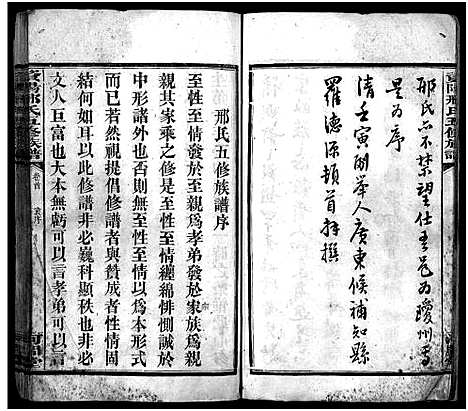 邢氏亦不禁望仕吾邑为瓊州
是为序
清壬寅副舉人廣東候補知縣
羅德源頓首拜撰
資陽邢氏五修族譜
邢氏五修族譜序
至性至情發於至親爲孝弟發於家族爲親
親其家乘之修歟至性至情纏綿悱惻誠於
中形諸外也否則無至性至情以爲本形式
而已若然視提倡修譜者與贊成者性情固
何如耳以此修譜非必巍科顯秩也非必
文人巨富也大本無虧可以言孝弟可以言
資陽邢氏五修族譜
卷首